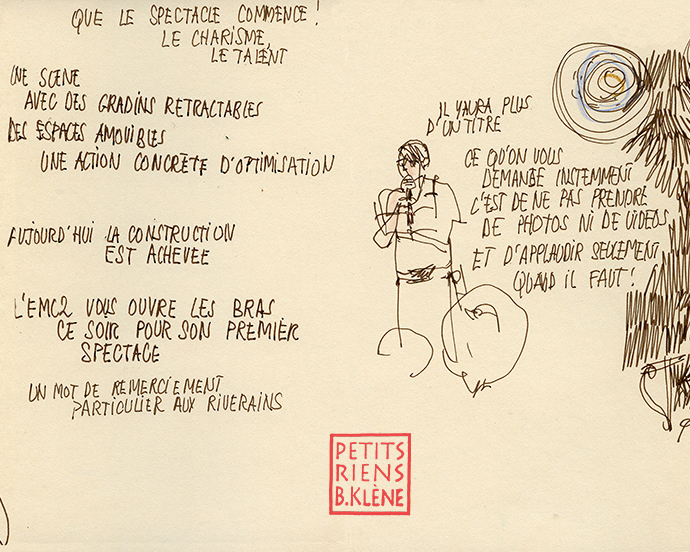 QUE LE SPECTACLE COMMENCE!
LE CHARISME,
LE TALENT
UNE SCENE
AVEC DES GRADINS RETRACTABLES
DES ESPACES AMOVIBLES
UNE ACTION CONCRÈTE D'OPTIMISATION
AUJOURD'HUI LA CONSTRUCTION
EST ACHEVÉE
L'EMC2 VOUS OUVRE LES BRAS
CE SOIR POUR SON PREMIER
SPECTACE
UN MOT DE REMERCIEMENT
PARTICULIER AUX RIVERAINS
IL Y AURA PLUS
D'UN TITRE
CE QU'ON VOUS
DEMANDE INSTEMMENT
C'EST DE NE PAS PRENDRE
DE PHOTOS NI DE VIDEOS
ET D'APPLAUDIR SEULEMENT
QUAND IL FAUT!
PETITS
RIENS
B.KLÈNE